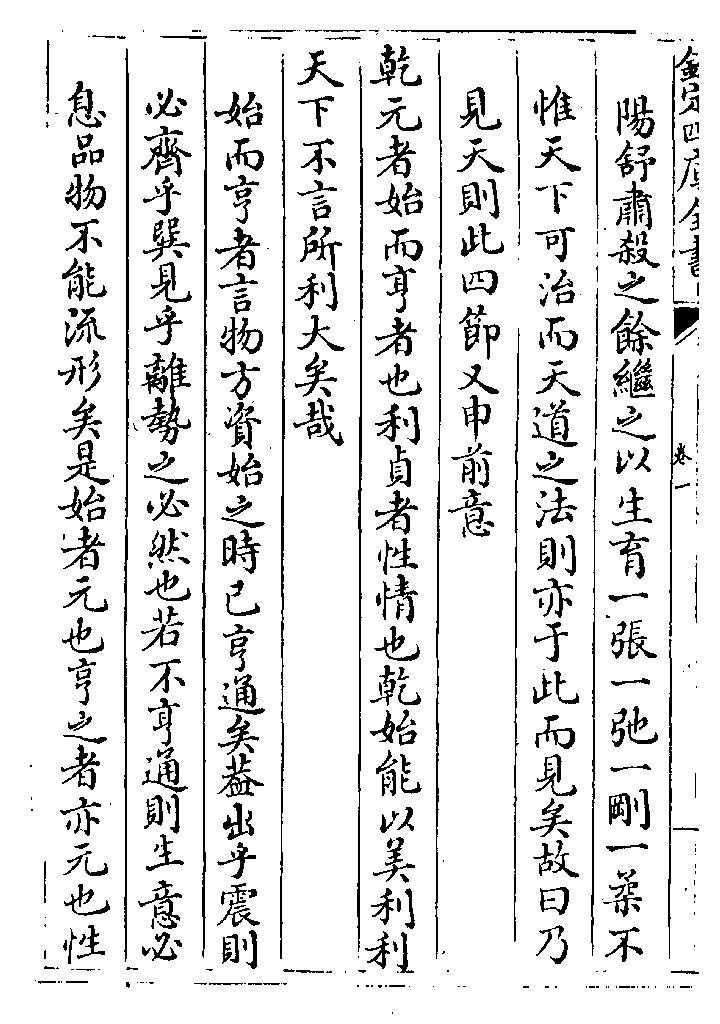 欽定四庫全書
卷一
陽舒肅殺之餘繼之以生育一張一弛一剛一柔不
惟天下可治而天道之法則亦于此而見矣故曰乃
見天則此四節又申前意
乾元者始而亨者也利貞者性情也乾始能以美利利
天下不言所利大矣哉
始而亨者言物方資始之時已亨通矣葢出乎震則
必齊乎巽見乎離勢之必然也若不亨通則生意必
息品物不能流形矣是始者元也亨之者亦元也性